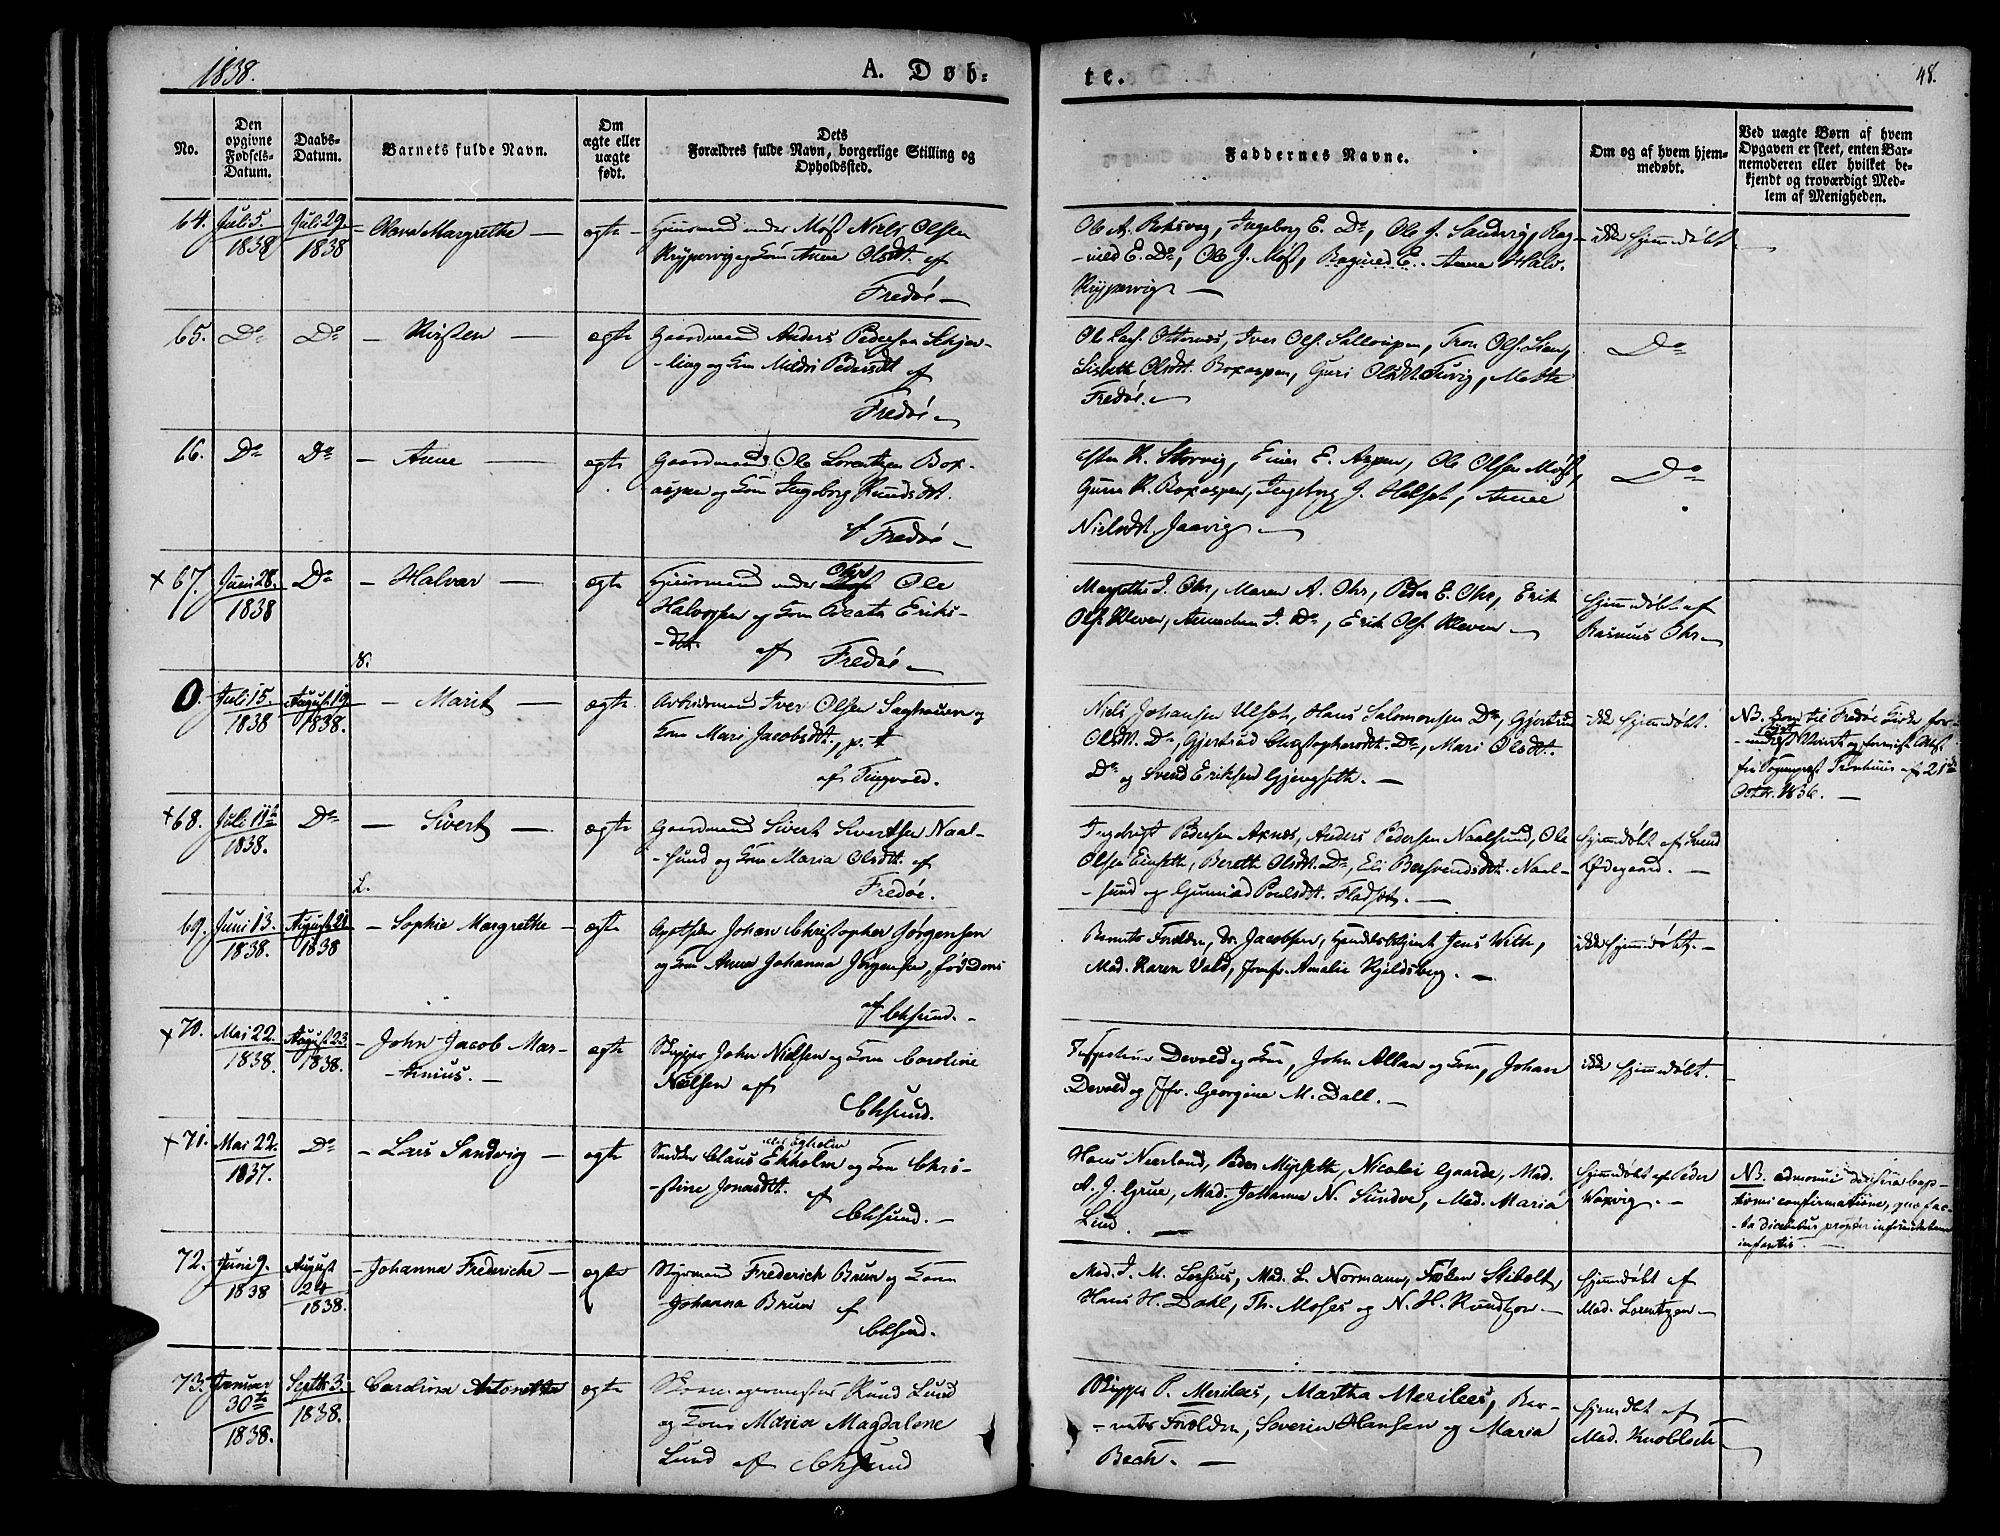 1838.
A. Døb-
te.
48.
No.
Den opgivne Fødsels-Datum.
Daabs-Datum.
Barnets fulde Navn.
Om ægte eller uægte født.
Dets Forældres fulde Navn, borgerlige Stilling og Opholdssted.
Faddernes Navne.
Om og af hvem hjem-medøbt.
Ved uægte Børn af hvem Opgaven er skeet, enten Bar-nemoderen eller hvilket be-kjendt og troværdigt Med-lem af Menigheden.
64. Juli 5. 1838 Juli 29. 1838 Olava Margrethe - ægte - Huusmand under Møst Niels Olsen
Krypervig og Kone Anne Olsdt. af
Fredøe -
Ole A. Reksveg, Ingeborg E. Do, Ole J. Sandvig, Rag-
-nild E. Do, Ole J. Møst, Ragnild E. Anne Halv.
Krypervig -
ikke hjemmedøbt
65. Do Do - Kirsten - ægte Gaardmand Anders Pedersen Skjær-
-ling og Kone Mildri Pedersdt af
Fredøe -
Ole Lars. Otternes, Iver Ols. Tron Ols. Lien,
Lisbeth Olsdt. Boxaspen, Guri Olsdt. Mette
Fredøe. -
Do
66. Do Do - Anne - ægte Gaardmand Ole Lorentzen Box-
aspen og Kone Ingeborg Knudsdt.
af Fredøe -
Esten K. Storvig, Einer E. Aspen, Ole Olsen Møst,
Guru K. Boxaspen, Ingeborg J. Helset, Anne
Nielsdt. Jaavig -
Do
+ 67. Juni 28. 1838 Do - Halvar - ægte Huusmand under Ohr Ole
Halvorsen og Kone Beata Eriks-
-dtr. af Fredøe -
Margrethe I. Ohr, Maren A. Ohr, Peder E. Ohr, Erik
Ols. Kleven, Annechen I. Do, Erik Ols. Kleven -
hjemmedøbt af
Rasmus Ohr -
8.
0. Juli 15. 1838 August 19. 1838. - Marit - ægte. Arbeidsmand Iver Olsen Saghauen og
Kone Mari Jacobsdt., p. t.
af Tingvold.
Niels Johansen Ulset, Hans Salomonsen Do, Gjertrud
Olsdt. Do, Gjertrud Christophersdt. Do, Mari Olsdt.
Do og Svend Eriksen Gjengseth. -
ikke hjemmedøbt.
NB. Kom til Fredøe Kirke for-
af 21de
Octbr. 1836. -
+68. Juli 11te 1838. Do - Sivert - ægte Gaardmand Sivert Sivertsen Naal-
-sund og Kone Maria Olsdt. af
Fredøe.
Ingebrigt Pedersen Axnes, Anders Pedersen Naalsund, Ole
Olsen Einseth, Bereth Olsdt. Do, Eli Bersvendsdt. Naal-
-sund og Gunnild Poulsdt. Fladset. -
hjemmedøbt af Svend
Ødegaard. -
2.
69. Juni 13. 1838. August 21. 1838 - Sophie Margrethe - ægte Johan Christopher Jørgensen
og Kone Anna Johanna Jørgensen, fød Dons
af Chsund. -
Barnets Forældre, Dr. Jacobsen, Jens With,
Mad. Karen Vald, Jomfr. Amalie Kjeldsberg. -
ikke hjemmedøbt. -
+ 70. Mai 22. 1838. August 23. 1838. - John Jacob Mar-
-thnius. -
ægte Skipper John Nielsen og Kone Caroline
Nielsen af
Chsund.
Devold og Kone, John Allan og Kone, Johan
Devold og Jfr. Georgine M. Dall. -
ikke hjemmedøbt.
+ 71. Mai 22. 1837. Do - Lars Sandvig - ægte Snedker Claus eller Egholm Ekholm og Kone Chri-
-stine Jonasdt. af
Chsund. -
Hans Neerland, Peder Myrseth, Nicolai Gaarde, Mad.
A. J. Grue, Mad. Johanna N. Sundve, Mad. Maria
Lund. -
hjemmedøbt af Peder
Waxvig. -
NB. admonui de sera bap-
-tismi confirmatione, quo fac-
-ta dicebatur propter
infantis. -
72. Juni 9. 1838 August 24 1838. - Johanna Frederiche - ægte Styrmand Frederich Brun og Kone
Johanna Brun af
Chsund.
Mad. I. M. Lossius, Mad. L. Normann, Frøken Stibolt,
Hans H. Dahl, Th. Moses og N. H. Knudtzon -
hjemmedøbt af
Mad. Lorentzen -
73. Januar 30te 1838. Septbr 3. 1838. Carolina Antonette ægte Knud Lund
og Kone Maria Magdalene
Lund af Chsund
Skipper P. Merilees, Martha Merilees, Bar-
-nets Forældre, Severin Hansen og Maria
Bech. -
hjemmedøbt af
Mad. Knoblock -